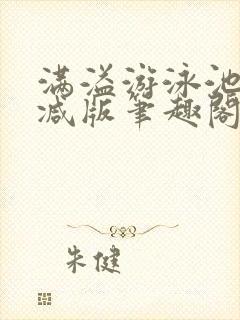 满溢游泳池
减版笔趣阁
朱健